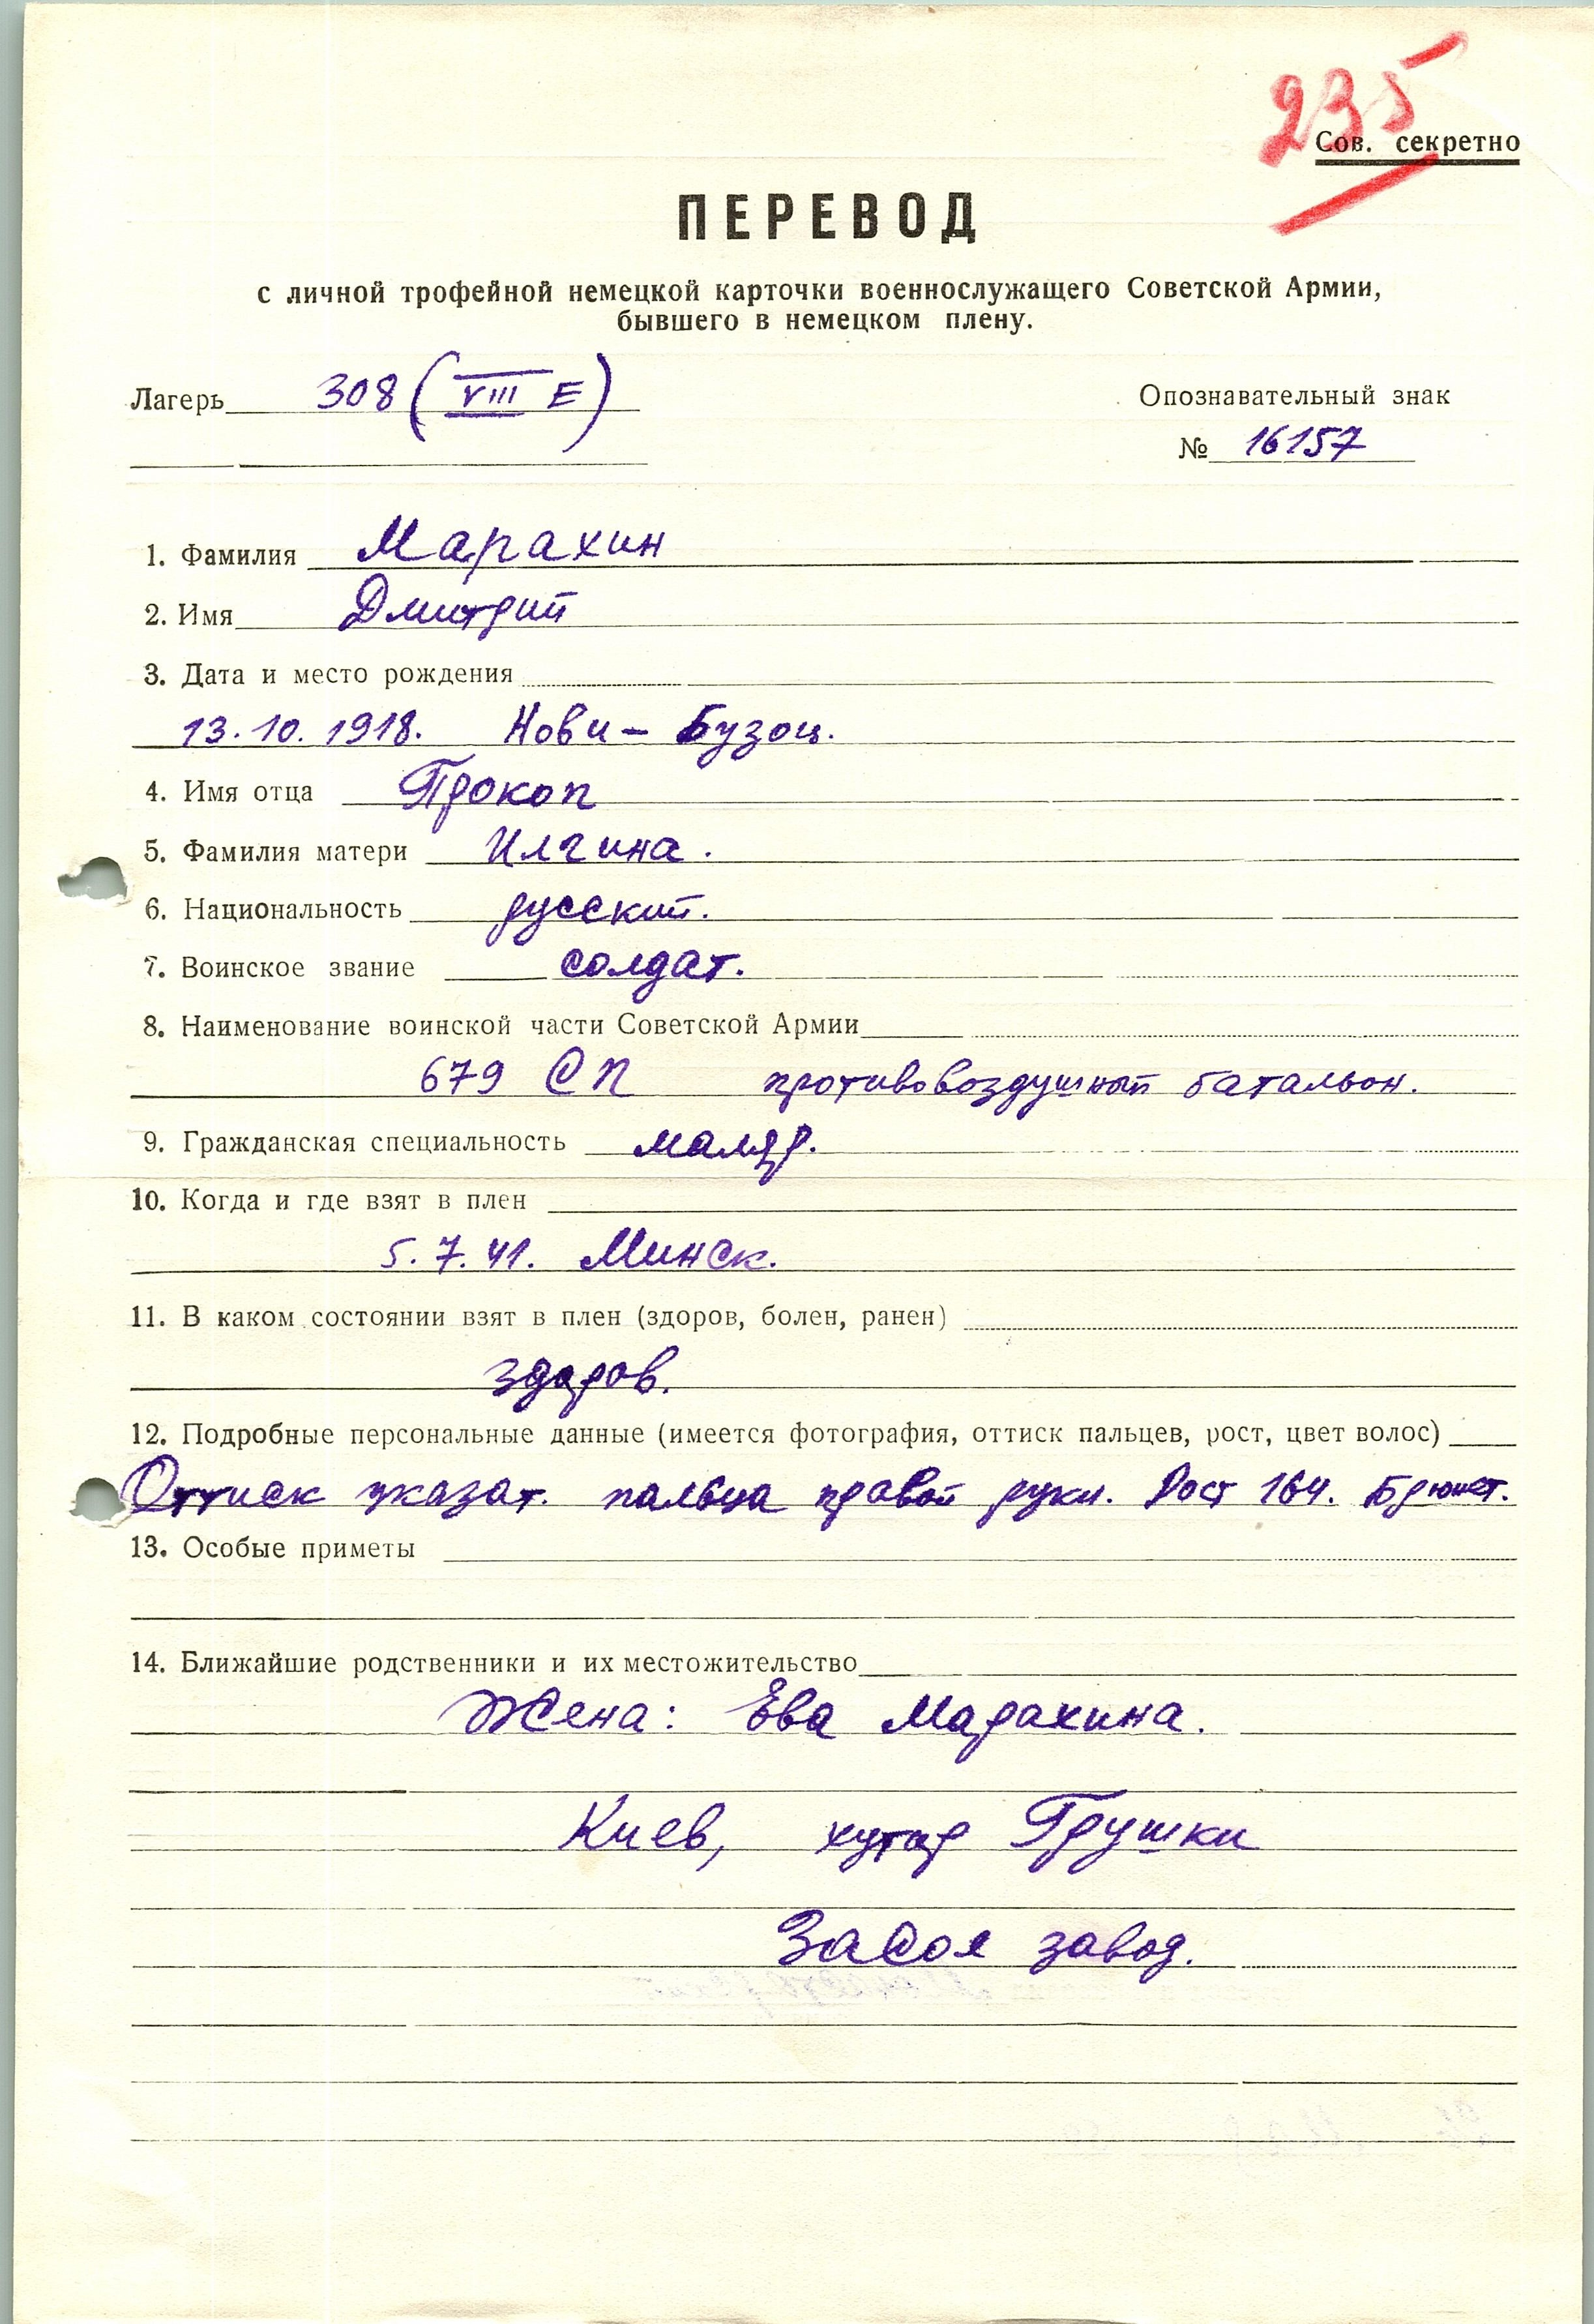 235
Сов. секретно
ПЕРЕВОД
с личной трофейной немецкой карточки военнослужащего Советской Армии,
бывшего в немецком плену.
Лагерь 308 (VIII E)
Опознавательный знак
№ 16157
1. Фамилия Марахин
2. Имя Дмитрий
3. Дата и место рождения
13.10.1918. Нови - Бузоц.
4. Имя отца Прокоп
5. Фамилия матери Илгина.
6. Национальность русский.
7. Воинское звание солдат.
8. Наименование воинской части Советской Армии
679 СП противовоздушный батальон.
9. Гражданская специальность маляр.
10. Когда и где взят в плен
5.7.41. Минск.
11. В каком состоянии взят в плен (здоров, болен, ранен)
здоров.
12. Подробные персональные данные (имеется фотография, оттиск пальцев, рост, цвет волос)
Оттиск указат. пальца правой руки. Рост 164. Брюнет.
13. Особые приметы
14. Ближайшие родственники и их местожительство
Жена: Ева Марахина.
Киев, хутор Грушки
завод.